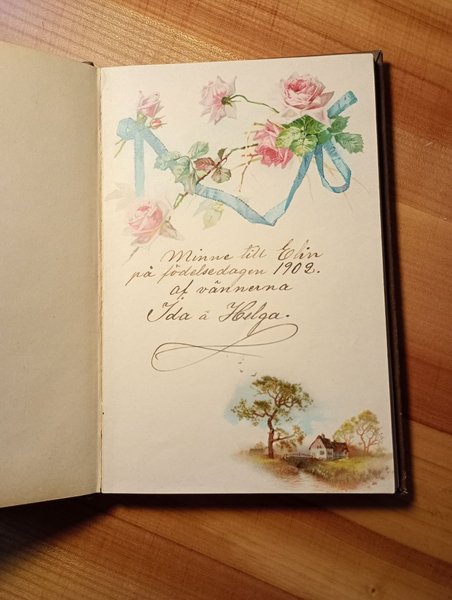 Minne till Elin
på födelsedagen 1902.
af vännerna
Ida å Helga.